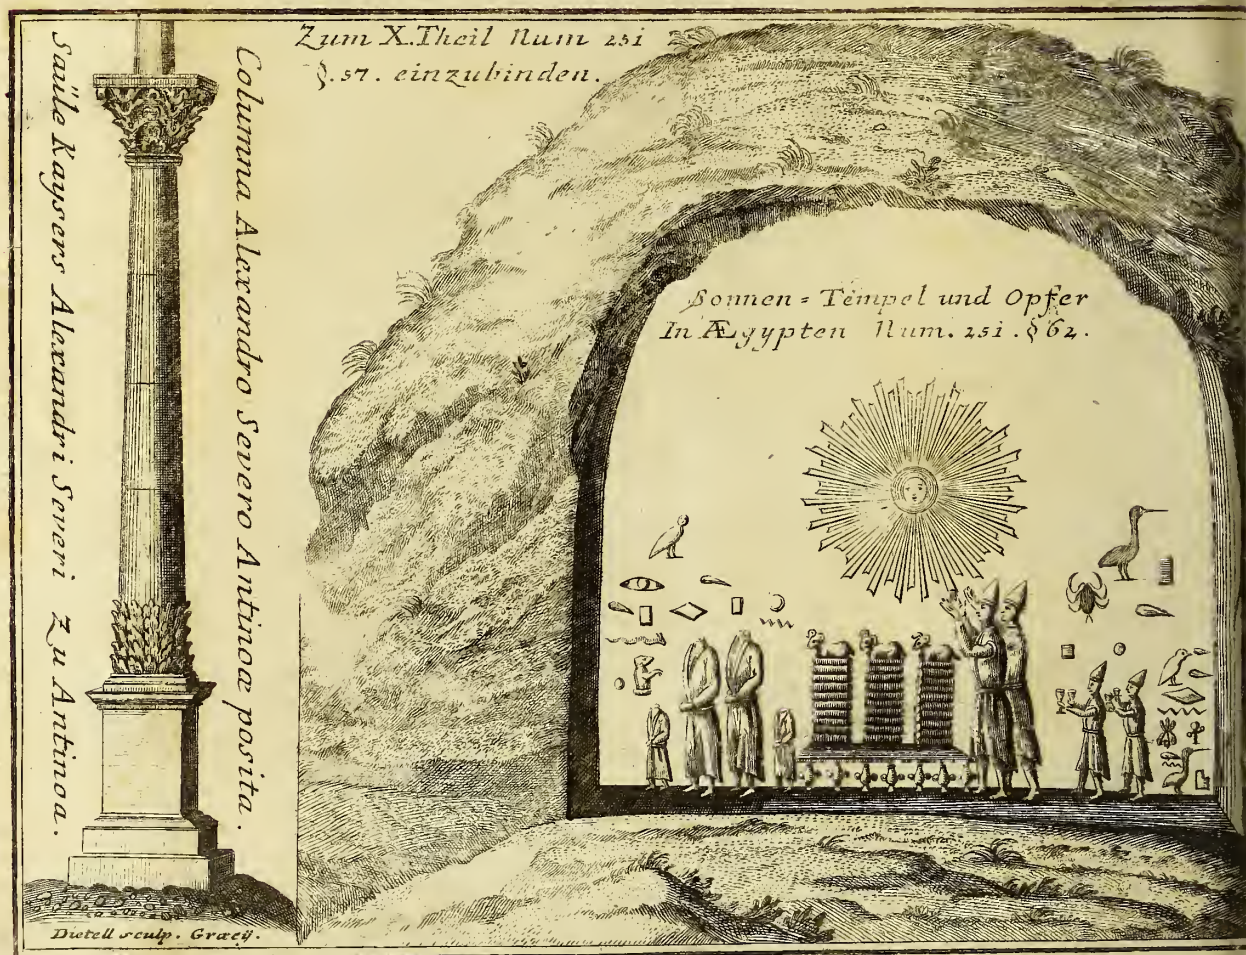 Zum X. Theil Num 251
§. 57. einzubinden.
Columna Alexandro Severo Antinoæ posita.
Saüle Kaysers Alexandri Severi Zu Antinoa.
Sonnen = Tempel und Opfer
In Ægypten Num. 251. § 62.
Dietell sculp. Græcij.